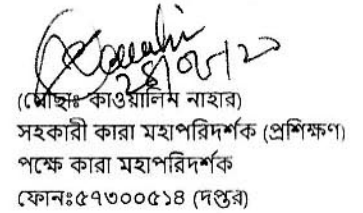 ২৪/০৮/২০
(মোছাঃ কাওয়ালিম নাহার)
সহকারী কারা মহাপরিদর্শক (প্রশিক্ষণ)
পক্ষে কারা মহাপরিদর্শক
ফোনঃ৫৭৩০০৫১৪ (দপ্তর)